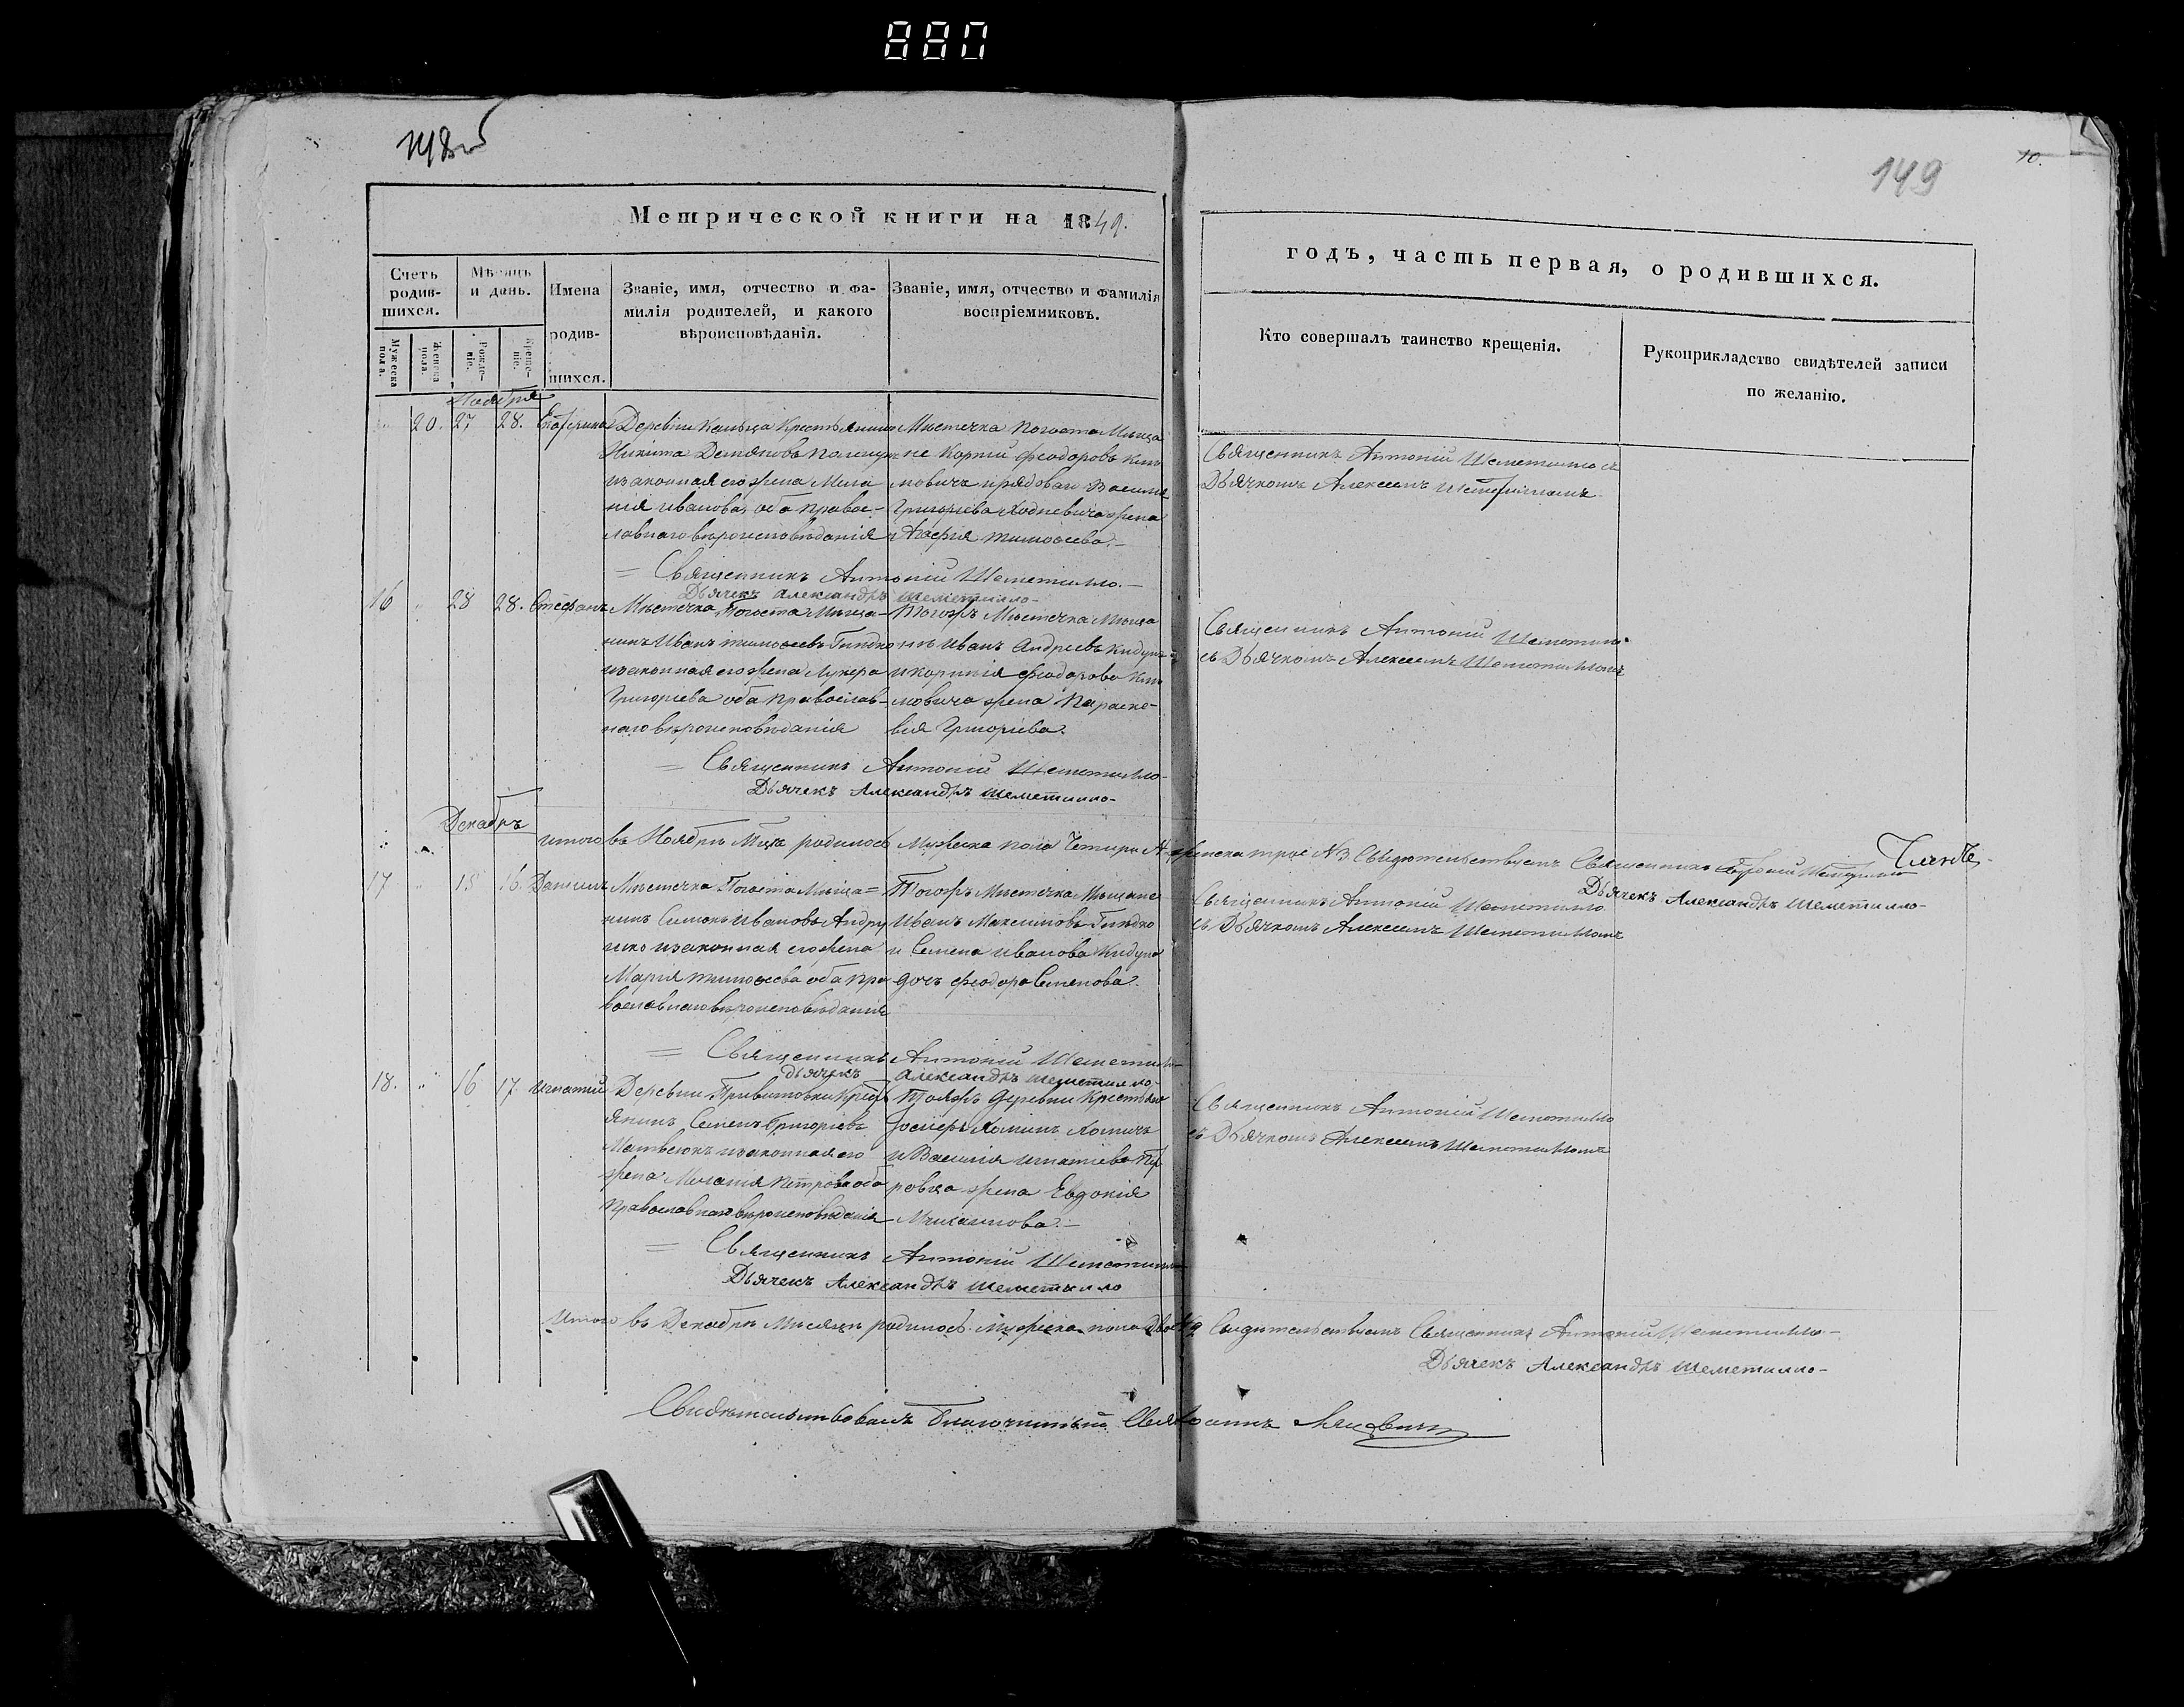 880
149
10.
Метрической книги на 1849.
годъ, часть первая, о родившихся.
Счетъ родив-шихся.
Мѣсяцъ и день.
Имена родив-шихся.
Званіе, имя, отчество и фа-милія родителей, и какого вѣроисповѣданія.
Званіе, имя, отчество и фамилія воспріемниковъ.
Кто совершалъ таинство крещенія.
Рукоприкладство свидѣтелей записи по желанію.
Мужеска пола.
Женска пола.
Рожде-ніе.
Креще-ніе.
Ноября
20. 27 28. Екатерина
Деревни Крестьянинъ
Никита Демяновъ
и законная его жена Мела
нія Иванова, оба правос-
лавнаго вѣроисповѣданія
Мѣстечка Погоста Мѣща
не Корній Феодоровъ Кли
мовичъ и рядоваго Василія
Григорьева Ходневича жена
Агафія Тимофеева.
Священникъ Антоній Шеметилло съ
Дьячкомъ Алексеемъ Шеметилломъ
Священникъ Антоній Шеметилло.
Дьячекъ Александръ Шеметилло
16 28 28. Стефанъ
Мѣстечка Погоста Мѣща-
нинъ Иванъ Тимофеевъ
и законная его жена Лукера
Григорьева оба православ-
наго вѣроисповѣданія
Тогожъ Мѣстечка Мѣща
не Иванъ Андреевъ Кидунъ
и Корнилія Феодорова Кли
мовича жена Параске-
вія Григорьева.
Священникъ Антоній Шеметилло
съ Дьячкомъ Алексеемъ Шеметилломъ
Священникъ Антоній Шеметилло
Дьячекъ Александръ Шеметилло
Декабрь
Итого въ Ноябрѣ Мцѣ родилось Мужеска пола Четыри 4 женска трое № 3 Свидѣтельствуемъ Священникъ Антоній Шеметилло
Дьячекъ Александръ Шеметилло
17 15 16. Даніилъ
Мѣстечка Погоста Мѣща=
нинъ Симонъ Ивановъ Андру
шко и законная его жена
Марія Тимофеева оба пра
вославнаго вѣроисповѣданія
Тогожъ Мѣстечка Мѣщане
Иванъ Максимовъ
и Семена Иванова Кидуна
дочь Феодора Семенова.
Священникъ Антоній Шеметилло
съ Дьячкомъ Алексеемъ Шеметилломъ
Священникъ Антоній Шеметилло
Дьячекъ Александръ Шеметилло
18. 16 17 Игнатій
Деревни Крестъ
янинъ Семенъ Григорьевъ
Матвеюкъ и законная его
жена Меланія Петрова оба
православнаго вѣроисповѣданія
Тояжъ деревни Крестьяне
Іосифъ Хоминъ Хомичъ
и Василія Игнатіева
жена Евдокія
Михаилова.
Священникъ Антоній Шеметилло
съ Дьячкомъ Алексеемъ Шеметилломъ
Священникъ Антоній Шеметилло
Дьячекъ Александръ Шеметилло
Итого въ Декабрѣ Мѣсяцѣ родилось Мужеска пола двое № 2 Свидѣтельствуемъ Священникъ Антоній Шеметилло
Дьячекъ Александръ Шеметилло
Свидѣтельствовалъ Благочинный